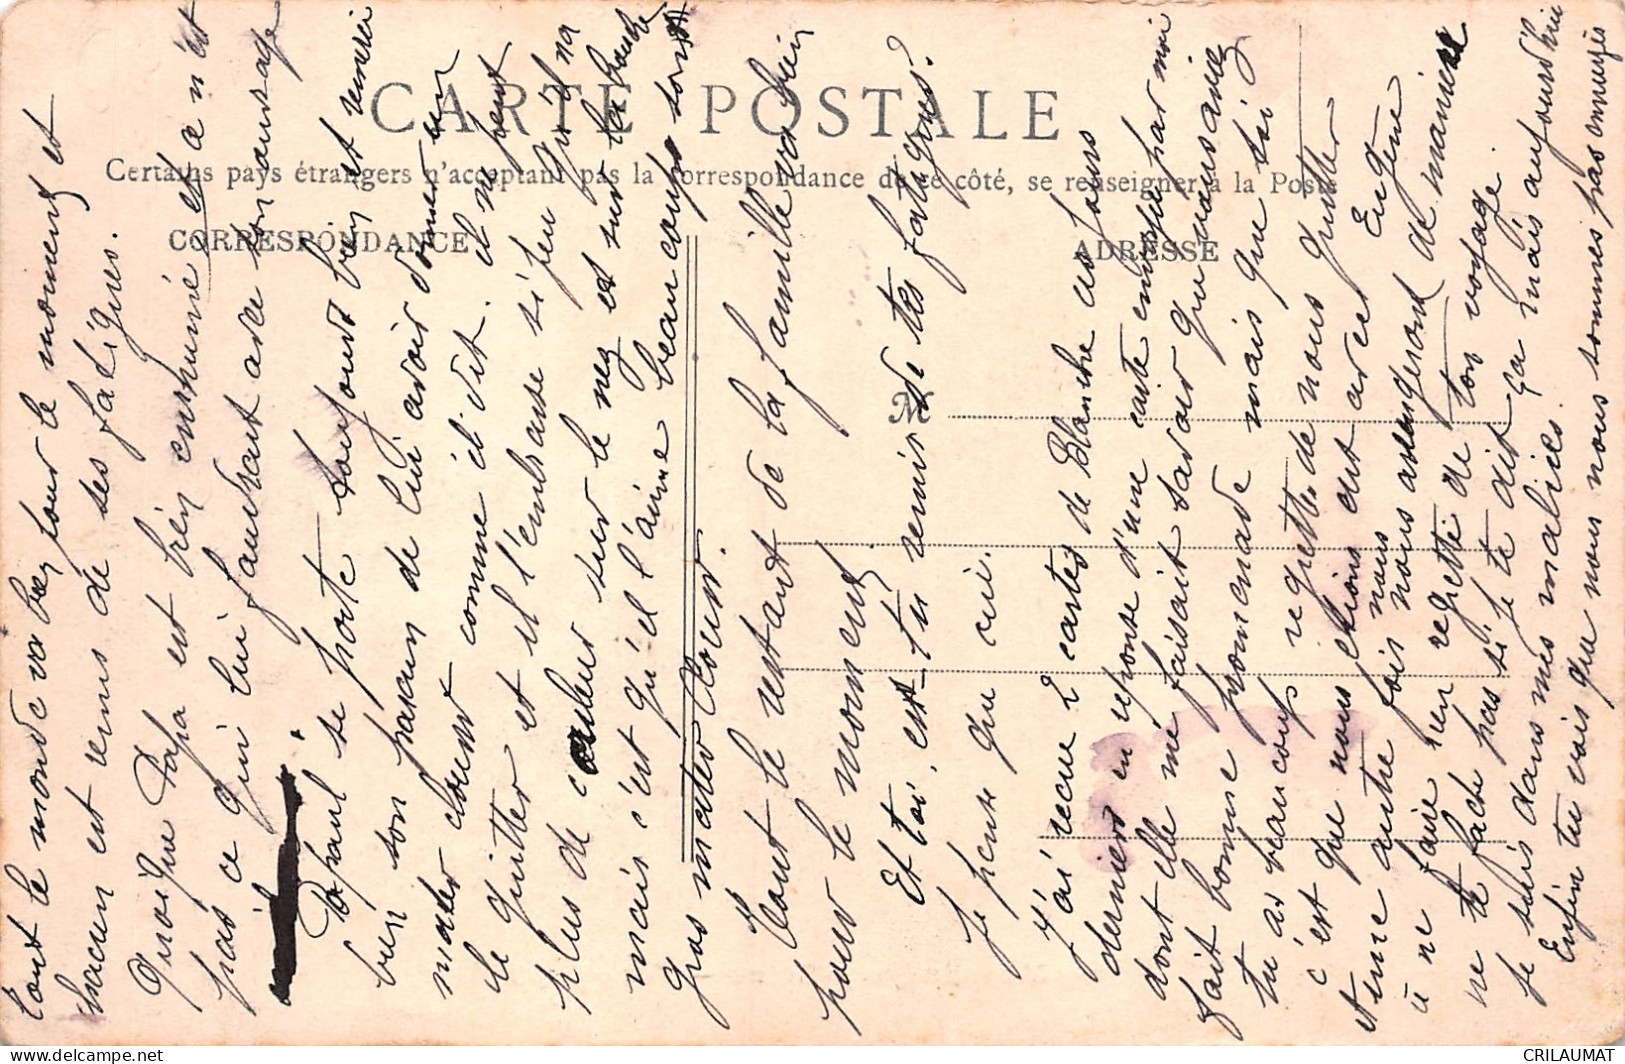 CARTE POSTALE
Certains pays étrangers n'acceptant pas la correspondance de ce côté, se renseigner à la Poste
CORRESPONDANCE
ADRESSE
M
Tout le monde va bien pour le moment et
chacun est remis de ses fatigues.
Quoique Papa est bien enrhumé et a n'est
pas ce qui lui faudrait avec son ouvrage
Popaul se porte toujours bien et
bien son parrain de lui avoir donner
mater comme il dit. il ne peut
le quitter et il l'embrasse si peu qu'il n'a
plus de couleur sur le nez et sur la bouche
mais c'est qu'il l'aime beaucoup son
gros mater
Tout le restant de la famille va bien
pour le moment
Et toi, est-tu remis de tes fatigues?
Je pense que oui.
J'ai recue 2 cartes de Blanche ces jours
derniers en reponse d'une carte envoyée par moi
dont elle me faisait savoir que vous aviez
fait bonne promenade mais que toi
tu as beaucoup regretté de nous quitter
c'est que nous etions avec Eugène
et une autre fois nous nous arrangerons de manière
à ne faire rien regretté de ton voyage.
ne te fache pas si je te dit ça mais aujourd'hui
je suis dans mes malices.
Enfin tu vois que nous nous sommes pas ennuyés
CRILAUMAT